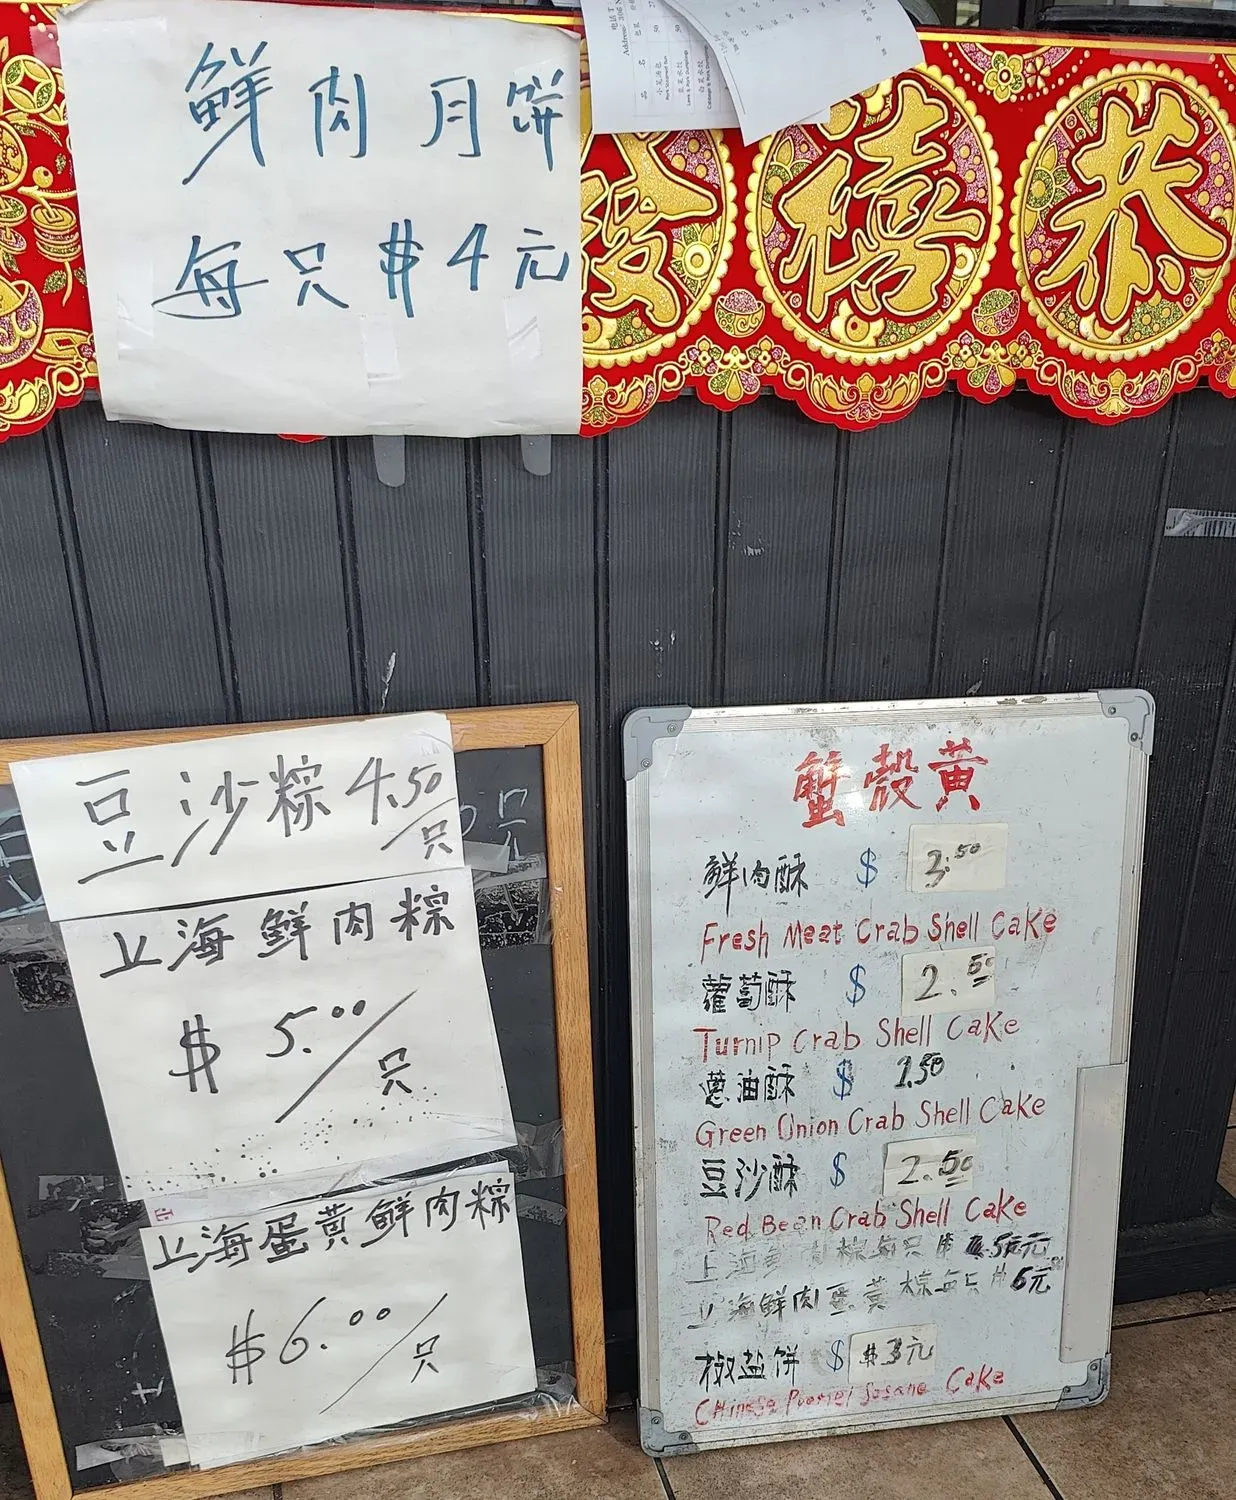 鲜肉月饼
每只$4元
恭禧發
豆沙粽 4.50/只
上海鲜肉粽
$5.00/只
上海蛋黄鲜肉粽
$6.00/只
蟹殼黄
鲜肉酥 $ 3.50
Fresh Meat Crab Shell Cake
蘿蔔酥 $ 2.50
Turnip Crab Shell Cake
蔥油酥 $
Green Onion Crab Shell Cake
豆沙酥 $ 2.50
Red Bean Crab Shell Cake
上海鲜肉粽每只
上海鲜肉蛋黄粽每只$6元
椒盐饼 $ $3元
Cake